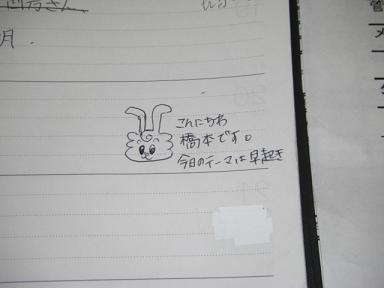 月.
こんにちわ
橋本です。
今日のテーマは早起き